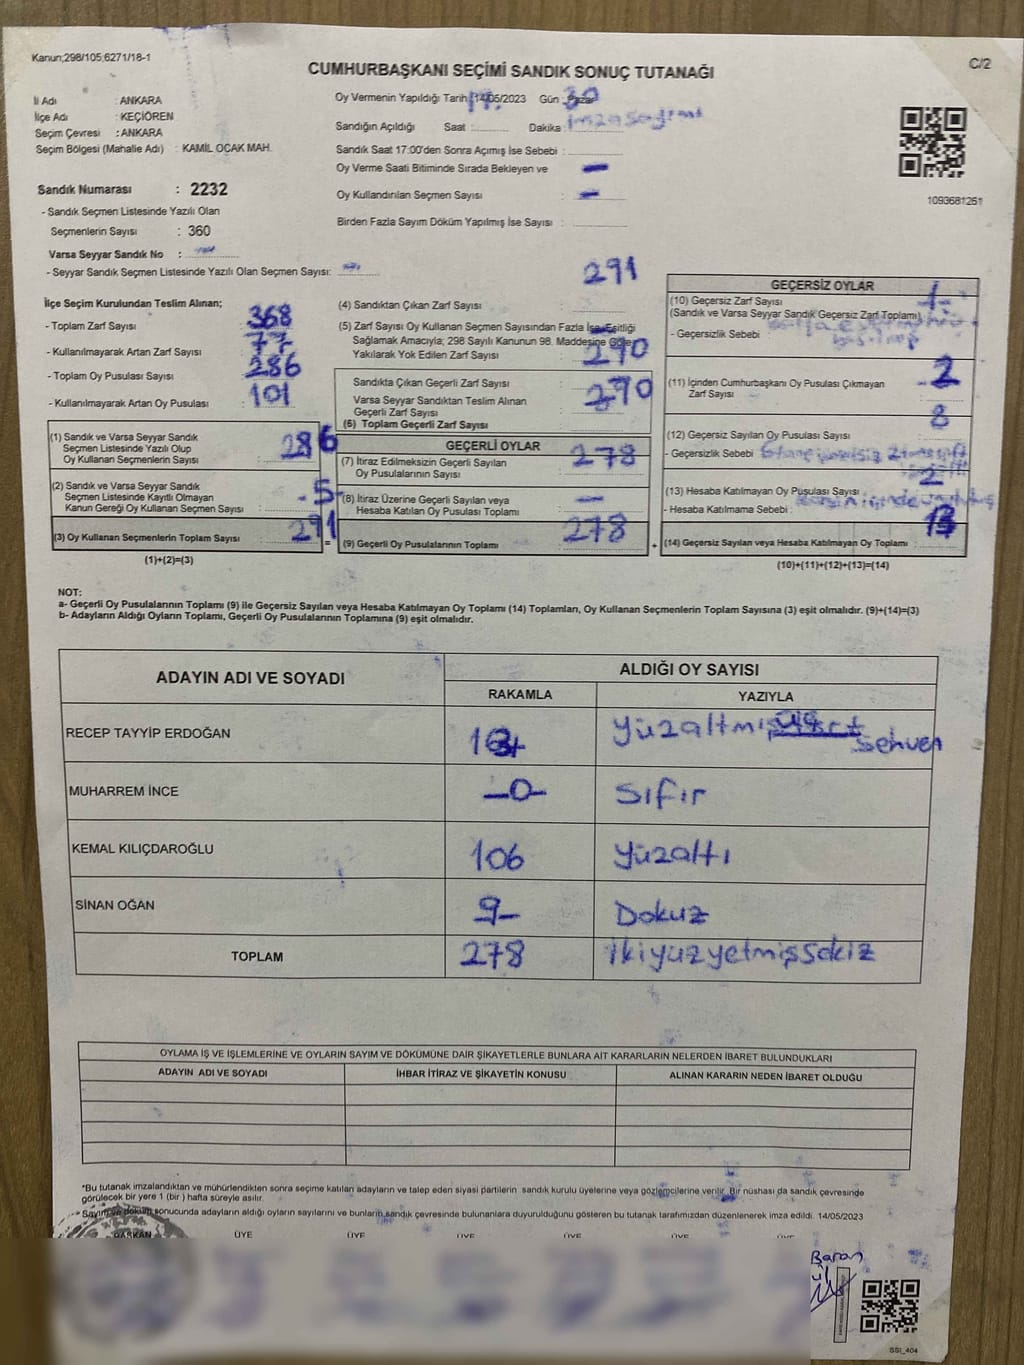 Kanun;298/105;6271/18-1
C/2
CUMHURBAŞKANI SEÇİMİ SANDIK SONUÇ TUTANAĞI
İl Adı : ANKARA
İlçe Adı : KEÇİÖREN
Seçim Çevresi : ANKARA
Seçim Bölgesi (Mahalle Adı) : KAMİL OCAK MAH.
Sandık Numarası : 2232
- Sandık Seçmen Listesinde Yazılı Olan
Seçmenlerin Sayısı : 360
Varsa Seyyar Sandık No :
- Seyyar Sandık Seçmen Listesinde Yazılı Olan Seçmen Sayısı:
Oy Vermenin Yapıldığı Tarih 14/05/2023 Gün : Pazar
Sandığın Açıldığı Saat : Dakika :
Sandık Saat 17:00'den Sonra Açımış İse Sebebi :
Oy Verme Saati Bitiminde Sırada Bekleyen ve
Oy Kullandırılan Seçmen Sayısı : -
Birden Fazla Sayım Döküm Yapılmış İse Sayısı :
1093681261
İlçe Seçim Kurulundan Teslim Alınan;
- Toplam Zarf Sayısı : 368
- Kullanılmayarak Artan Zarf Sayısı : 77
- Toplam Oy Pusulası Sayısı : 286
- Kullanılmayarak Artan Oy Pusulası : 101
(1) Sandık ve Varsa Seyyar Sandık
Seçmen Listesinde Yazılı Olup
Oy Kullanan Seçmenlerin Sayısı : 286
(2) Sandık ve Varsa Seyyar Sandık
Seçmen Listesinde Kayıtlı Olmayan
Kanun Gereği Oy Kullanan Seçmen Sayısı : -5-
(3) Oy Kullanan Seçmenlerin Toplam Sayısı : 291
(1)+(2)=(3)
(4) Sandıktan Çıkan Zarf Sayısı : 291
(5) Zarf Sayısı Oy Kullanan Seçmen Sayısından Fazla İse, Eşitliği
Sağlamak Amacıyla; 298 Sayılı Kanunun 98. Maddesine Göre
Yakılarak Yok Edilen Zarf Sayısı :
Sandıkta Çıkan Geçerli Zarf Sayısı : 290
Varsa Seyyar Sandıktan Teslim Alınan
Geçerli Zarf Sayısı :
(6) Toplam Geçerli Zarf Sayısı : 290
GEÇERLİ OYLAR
(7) İtiraz Edilmeksizin Geçerli Sayılan
Oy Pusulalarının Sayısı : 278
(8) İtiraz Üzerine Geçerli Sayılan veya
Hesaba Katılan Oy Pusulası Toplamı : -
(9) Geçerli Oy Pusulalarının Toplamı : 278
GEÇERSİZ OYLAR
(10) Geçersiz Zarf Sayısı 1-
(Sandık ve Varsa Seyyar Sandık Geçersiz Zarf Toplamı)
- Geçersizlik Sebebi :
(11) İçinden Cumhurbaşkanı Oy Pusulası Çıkmayan
Zarf Sayısı : 2
(12) Geçersiz Sayılan Oy Pusulası Sayısı : 8
- Geçersizlik Sebebi
(13) Hesaba Katılmayan Oy Pusulası Sayısı : 2
- Hesaba Katılmama Sebebi :
(14) Geçersiz Sayılan veya Hesaba Katılmayan Oy Toplamı : 13
(10)+(11)+(12)+(13)=(14)
NOT:
a- Geçerli Oy Pusulalarının Toplamı (9) ile Geçersiz Sayılan veya Hesaba Katılmayan Oy Toplamı (14) Toplamları, Oy Kullanan Seçmenlerin Toplam Sayısına (3) eşit olmalıdır. (9)+(14)=(3)
b- Adayların Aldığı Oyların Toplamı, Geçerli Oy Pusulalarının Toplamına (9) eşit olmalıdır.
ADAYIN ADI VE SOYADI ALDIĞI OY SAYISI
RAKAMLA YAZIYLA
RECEP TAYYİP ERDOĞAN Yüzaltmış sehven
MUHARREM İNCE -0- Sıfır
KEMAL KILIÇDAROĞLU 106 Yüzaltı
SİNAN OĞAN 9- Dokuz
TOPLAM 278 ikiyüzyetmişsekiz
OYLAMA İŞ VE İŞLEMLERİNE VE OYLARIN SAYIM VE DÖKÜMÜNE DAİR ŞİKAYETLERLE BUNLARA AİT KARARLARIN NELERDEN İBARET BULUNDUKLARI
ADAYIN ADI VE SOYADI İHBAR İTİRAZ VE ŞİKAYETİN KONUSU ALINAN KARARIN NEDEN İBARET OLDUĞU
*Bu tutanak imzalandıktan ve mühürlendikten sonra seçime katılan adayların ve talep eden siyasi partilerin sandık kurulu üyelerine veya gözlemcilerine verilir. Bir nüshası da sandık çevresinde
görülecek bir yere 1 (bir) hafta süreyle asılır.
Sayım ve döküm sonucunda adayların aldığı oyların sayılarını ve bunların sandık çevresinde bulunanlara duyurulduğunu gösteren bu tutanak tarafımızdan düzenlenerek imza edildi. 14/05/2023
BAŞKAN ÜYE ÜYE ÜYE ÜYE ÜYE ÜYE
Baran
SSI_404